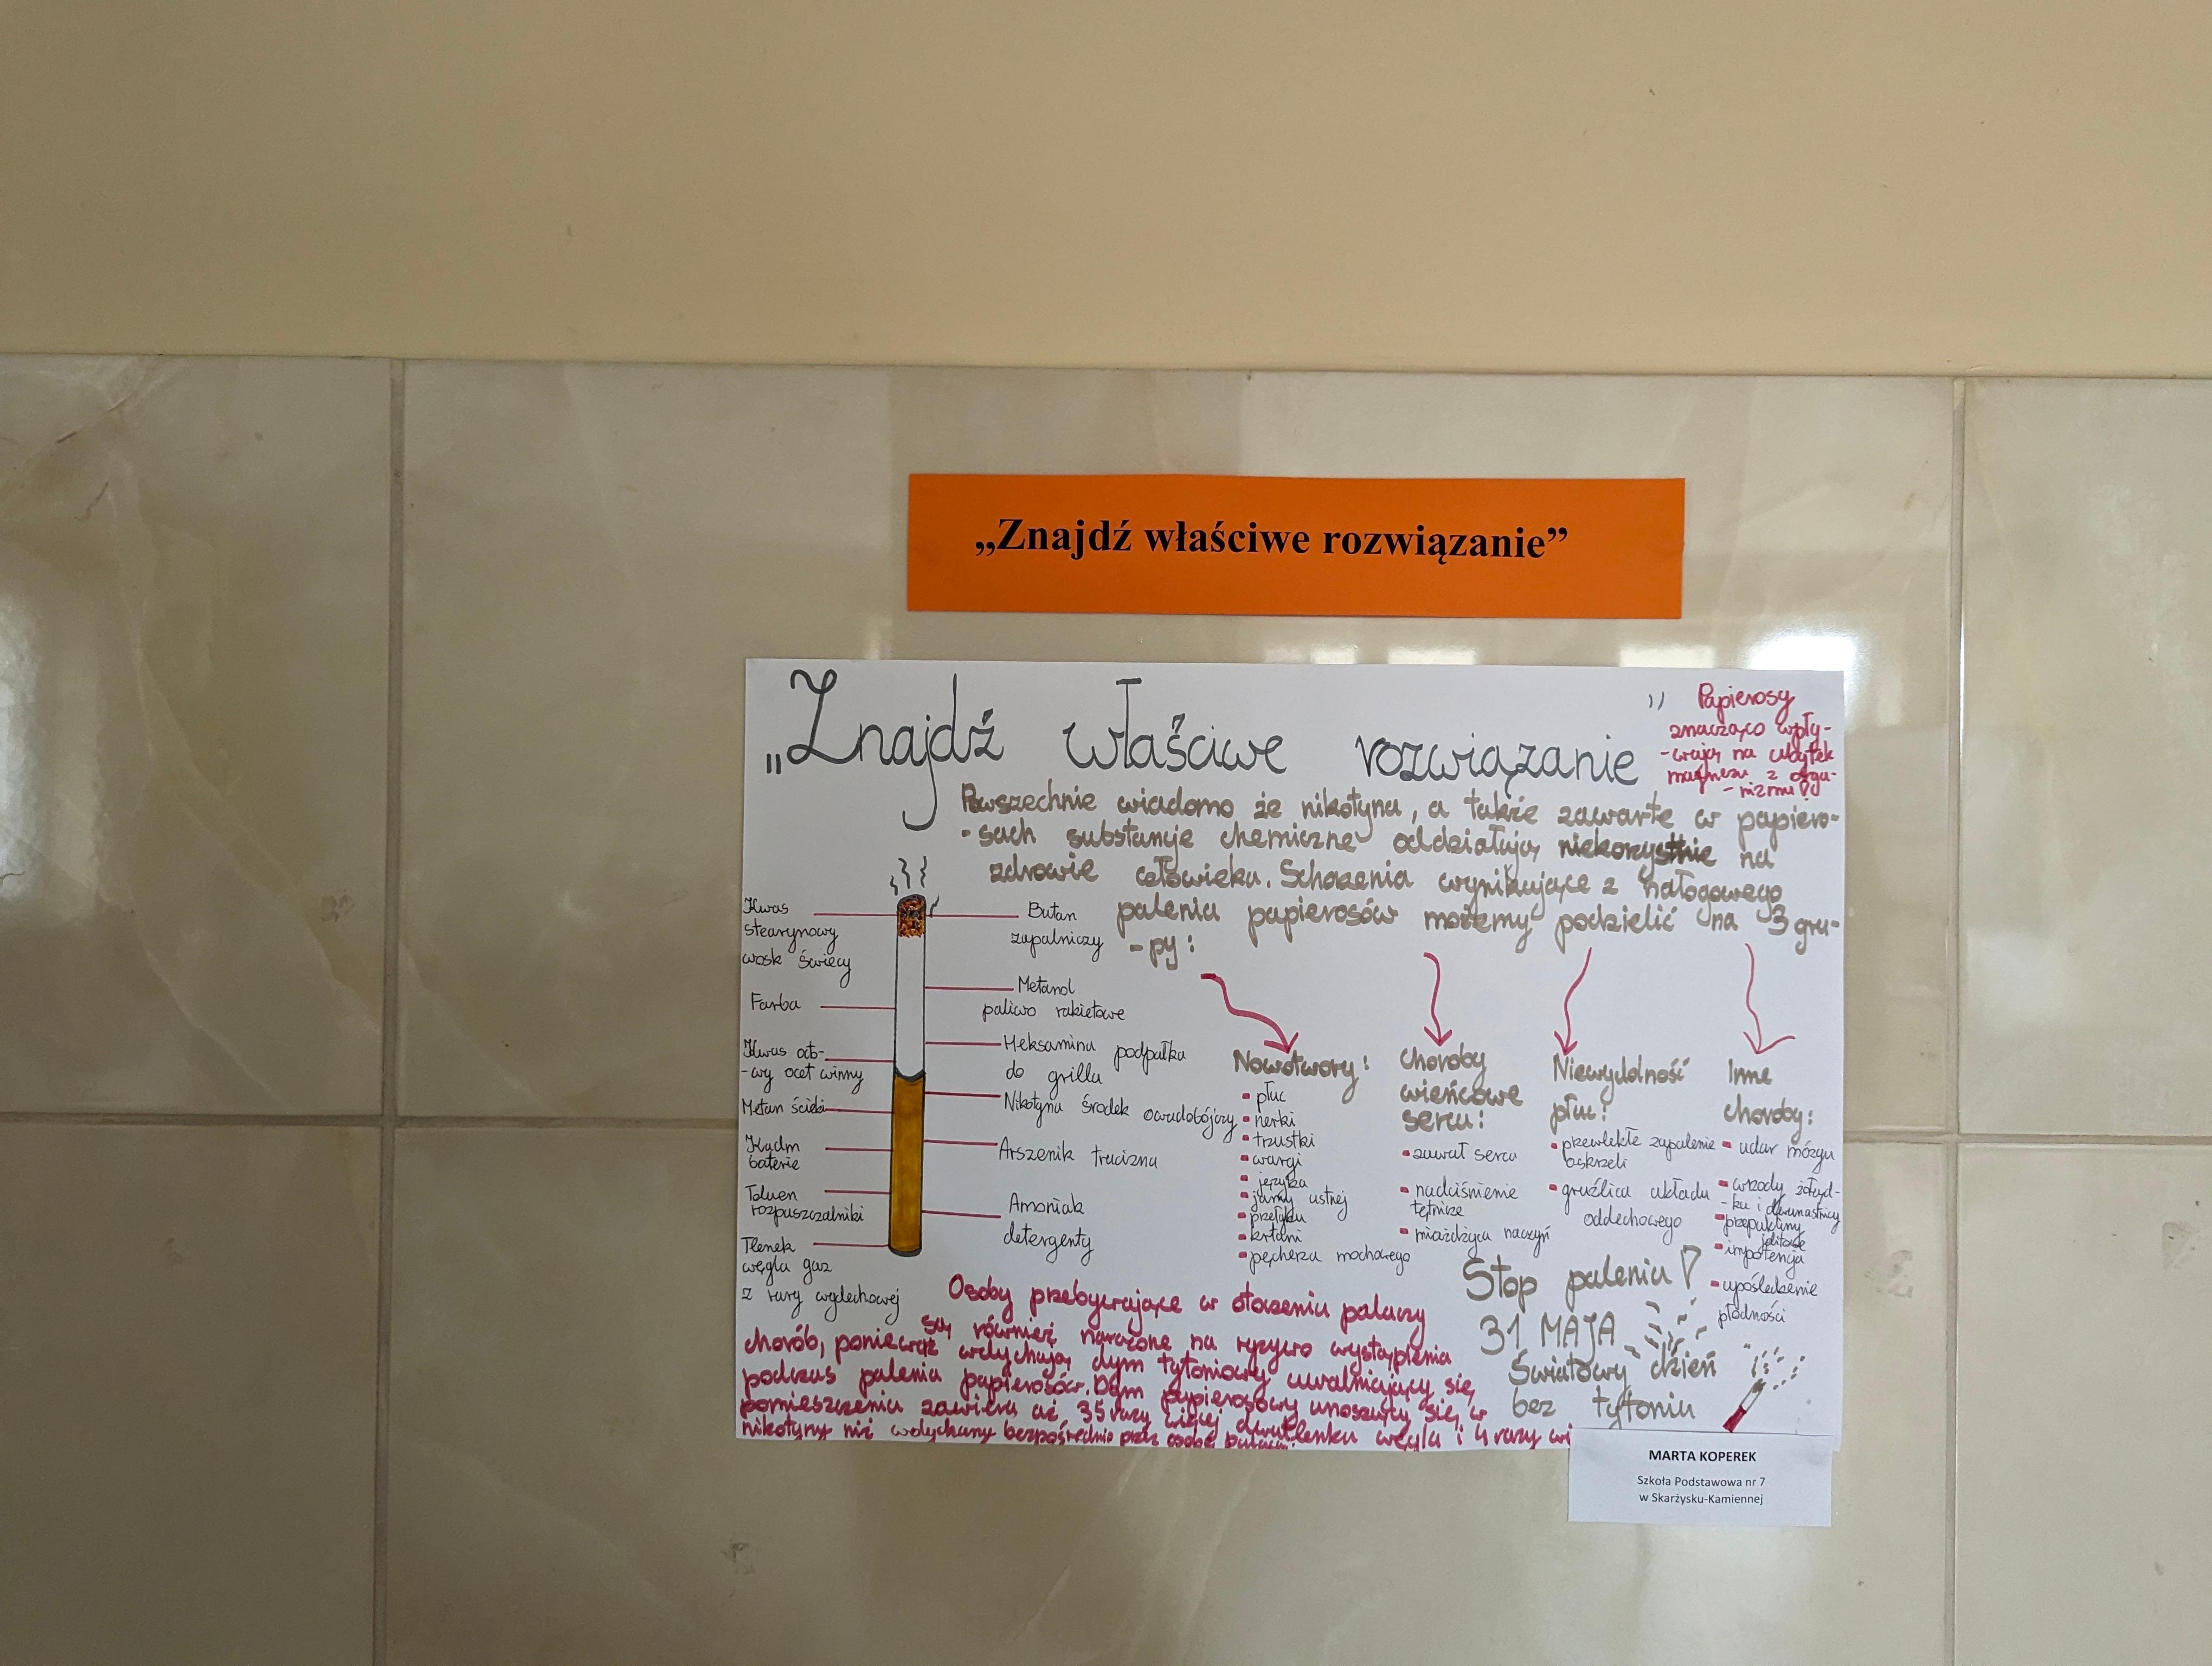 „Znajdź właściwe rozwiązanie”
„Znajdź właściwe rozwiązanie
”
Papierosy
znacząco wpły-
-wają na ubytek
magnezu z orga-
- nizmu!
Powszechnie wiadomo że nikotyna, a także zawarte w papiero-
- sach substancje chemiczne oddziałują niekorzystnie na
zdrowie człowieka. Schorzenia wynikające z nałogowego
palenia papierosów możemy podzielić na 3 gru-
- py:
Kwas
stearynowy
wosk świecy
Farba
Kwas octo-
-wy ocet winny
Metan ścieki
Kadm
baterie
Toluen
rozpuszczalniki
Tlenek
węgla gaz
z rury wydechowej
Butan
zapalniczy
Metanol
paliwo rakietowe
Heksamina podpałka
do grilla
Nikotyna środek owadobójczy
Arszenik trucizna
Amoniak
detergenty
Nowotwory:
płuc
nerki
trzustki
wargi
języka
jamy ustnej
przełyku
krtani
pęcherza mochowego
Choroby
wieńcowe
serca:
zawał serca
nadciśnienie
tętnicze
miażdżyca naczyń
Niewydolność
płuc:
przewlekłe zapalenie
oskrzeli
gruźlica układu
oddechowego
Inne
choroby:
udar mózgu
wrzody żołąd-
- ku i dwunastnicy
przepukliny
jelitowe
impotencja
upośledzenie
płodności
Stop paleniu!
31 MAJA
Światowy dzień
bez tytoniu
Osoby przebywające w otoczeniu palaczy
są również narażone na ryzyko wystąpienia
chorób, ponieważ wdychają dym tytoniowy uwalniający się
podczas palenia papierosów. Dym papierosowy unoszący się w
pomieszczeniu zawiera aż 35 razy więcej dwutlenku węgla i 4 razy wi
nikotyny niż wdychany bezpośrednio przez osobę palącą.
MARTA KOPEREK
Szkoła Podstawowa nr 7
w Skarżysku-Kamiennej